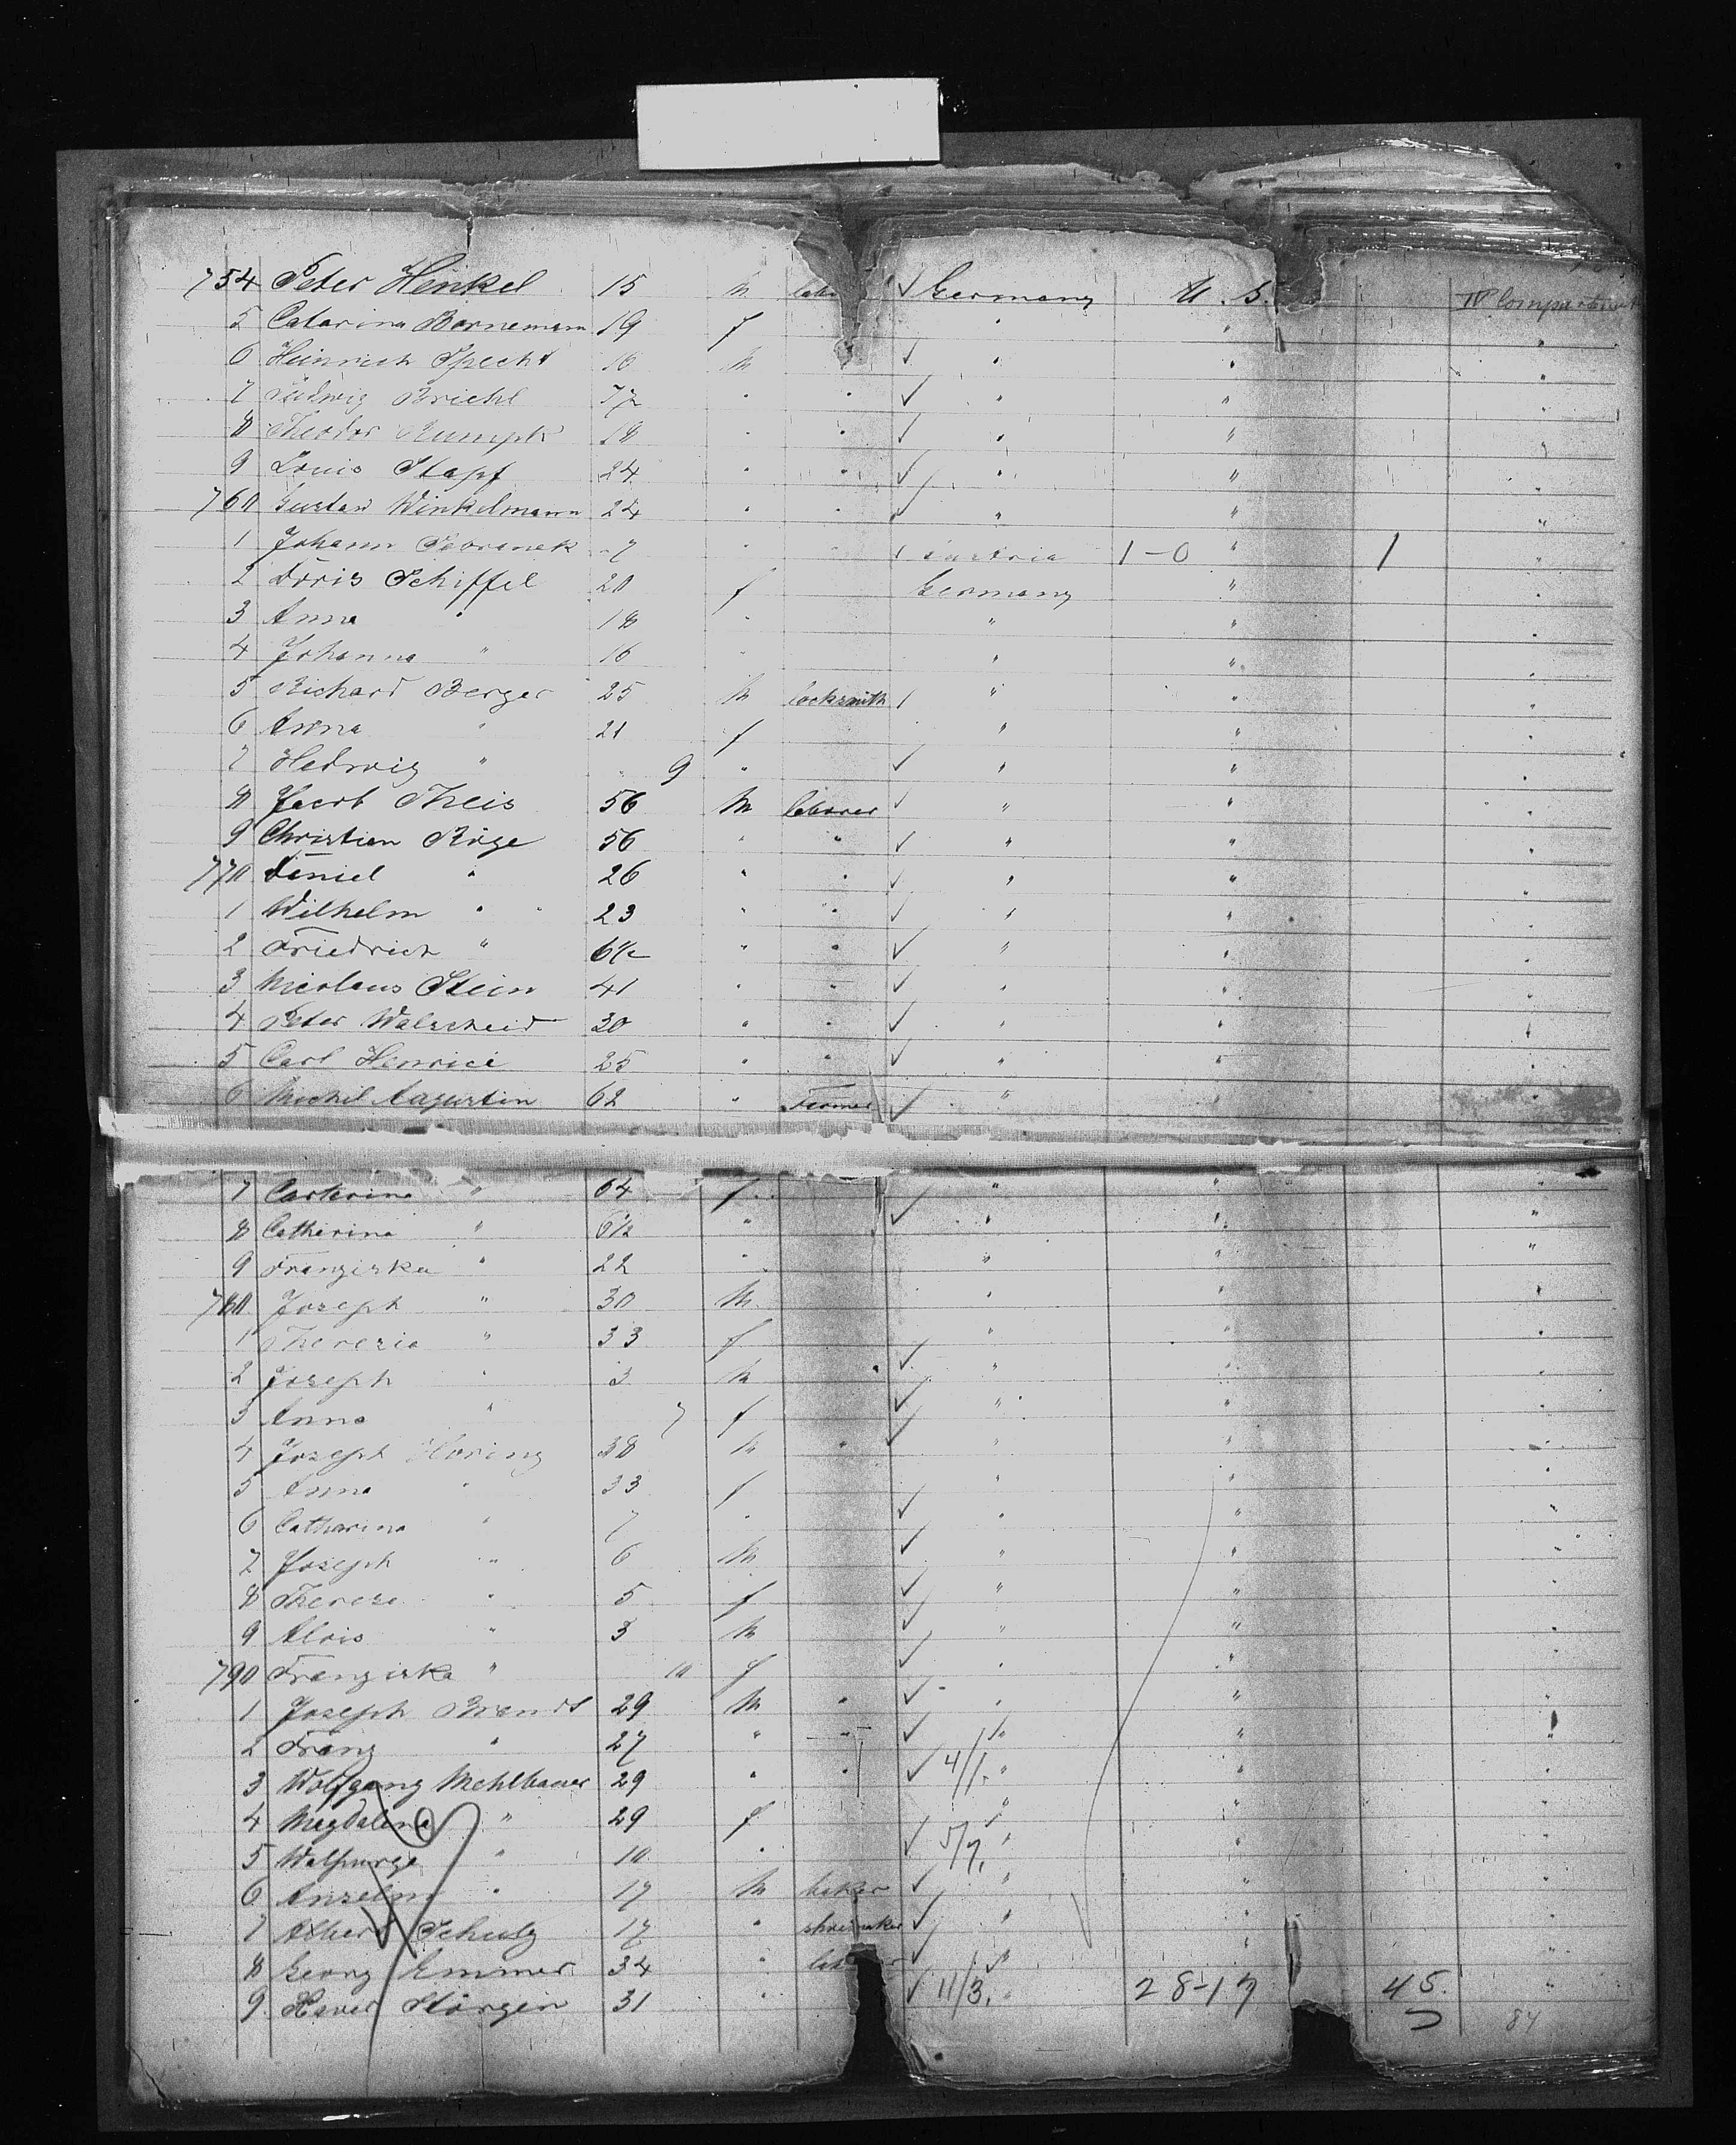 754 Peter Henkel 15 m labo ✓ Germany U. S. IV Compartment
5 Catarina Bornemann 19 f " " "
6 Heinrich Specht 16 m ✓ " " "
7 Ludwig Briehl " " ✓ " " "
8 Theodor Rumpk 18 " " ✓ " " "
9 Louis Stapf 24 " " ✓ " " "
760 Gustav Winkelmann 24 " " ✓ " " "
1 Johann 7 " " Austria 1-0 " 1 "
2 Doris Schiffel 20 f Germany " "
3 Anna " 18 " " " "
4 Johanna " 16 " " " "
5 Richard Berger 25 m locksmith / " " "
6 Anna " 21 f " " "
7 Hedwig " 9 " ✓ " " "
8 Jacob Theis 56 m laborer ✓ " " "
9 Christian Röge 56 " " ✓ " " "
770 Daniel " 26 " " ✓ " " "
1 Wilhelm " 23 " " ✓ " " "
2 Friedrich " 6½ " " ✓ " " "
3 Nicolaus Stein 41 " " ✓ " " "
4 Peter Walscheid 30 " " ✓ " " "
5 Carl Henrici 25 " " ✓ " " "
6 Michel Augustin 62 " Farmer ✓ " " "
7 Catherina " 64 f ✓ " " "
8 Catherina " 6½ " " " "
9 Franziska " 22 " " " "
780 Joseph " 30 m " " "
1 Theresia " 33 f ✓ " " "
2 Joseph " 3 m ✓ " " "
3 Anna " 7 f ✓ " " "
4 Joseph Horing 38 m " " " "
5 Anna " 33 f ✓ " " "
6 Catharina " 7 " ✓ " " "
7 Joseph " 6 m ✓ " " "
8 Therese " 5 f ✓ " " "
9 Alois " 3 m ✓ " " "
790 Franziska " 10 f ✓ " " "
1 Joseph Brandt 29 m " ✓ " " "
2 Franz " 27 " " ✓ " " "
3 Wolfgang Mehlbauer 29 " " ✓ 4/1. " " "
4 Magdalena " 29 f " " "
5 Walpurga " 10 " ✓ 5/7. " " "
6 Anselm " 17 m baker ✓ " " "
7 Albert Schulz 17 " shoemaker ✓ " " "
8 Georg Emmer 34 " ✓ " " "
9 Xaver Störgin 31 " ✓ 11/3. " 28-17 45. "
84